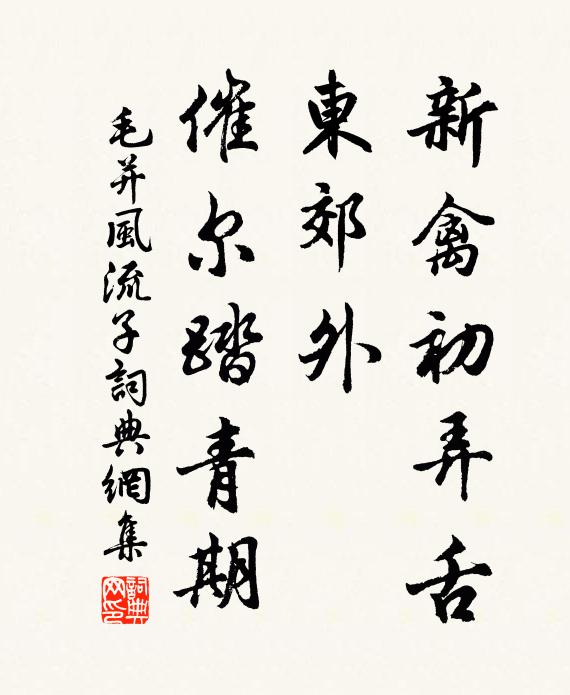 新禽初弄舌
東郊外
催尔踏青期
毛并風流子詞典網集
詞典
网印